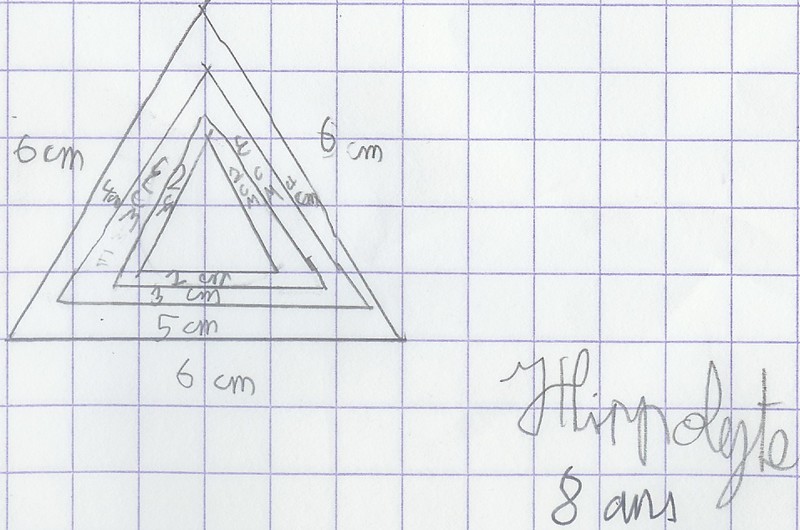 6 cm
6 cm
4 cm
3 cm
2 cm
2 cm
3 cm
4 cm
2 cm
3 cm
5 cm
6 cm
Hippolyte
8 ans